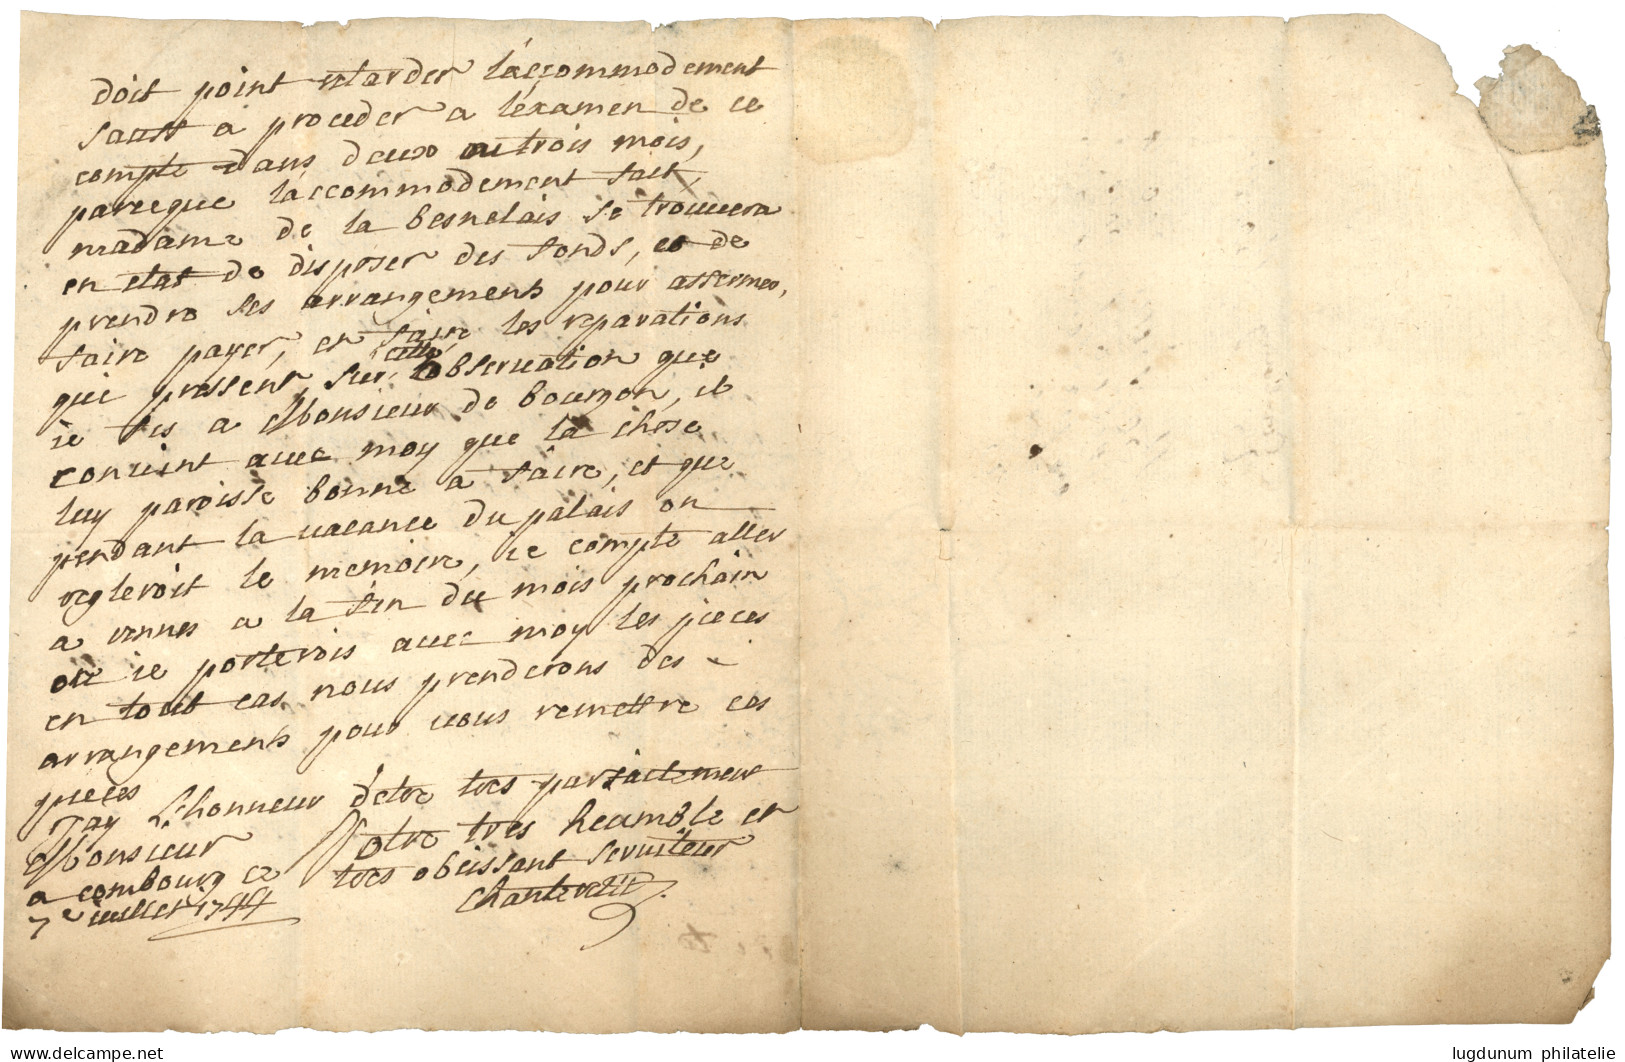 doit point retarder l'accommodement
sauff a proceder a l'examen de ce
compte dans deux ou trois mois,
parceque l'accommodement fait,
madame de la besnelais se trouuera
en etat de disposer des fonds, et de
prendre ses arrangements pour affermer,
faire payer, et faire les reparations
qui pressent, sur cette observation que
ie fis a Monsieur de bourgon, il
conuient auec moy que la chose
luy paroisse bonne a faire, et que
pendant la uacance du palais on
regleroit le memoire, ie compte aller
a rennes a la fin du mois prochain
ou ie porterois auec moy les pieces
en tout cas nous prenderons des
arrangements pour uous remettre ces
pieces
J'ay l'honneur d'etre tres parfaitement
Monsieur Votre tres heumble et
a combourg ce tres obeissant seruiteur
7e iuillet 1744
lugdunum philatelie